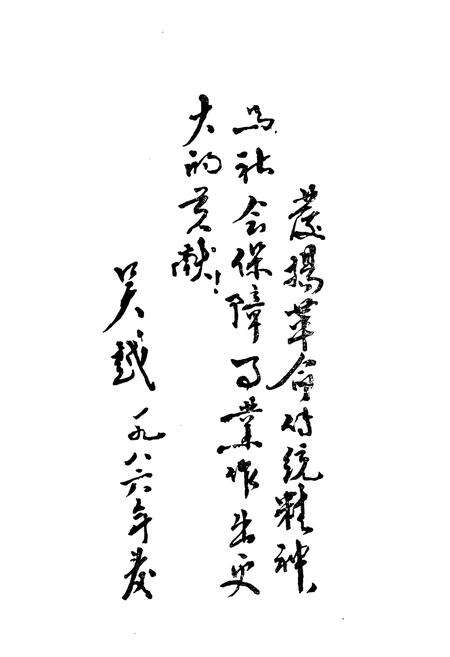 發揚革命传统精神、
为社会保障事業作出更
大的贡献！
吴越 一九八六年